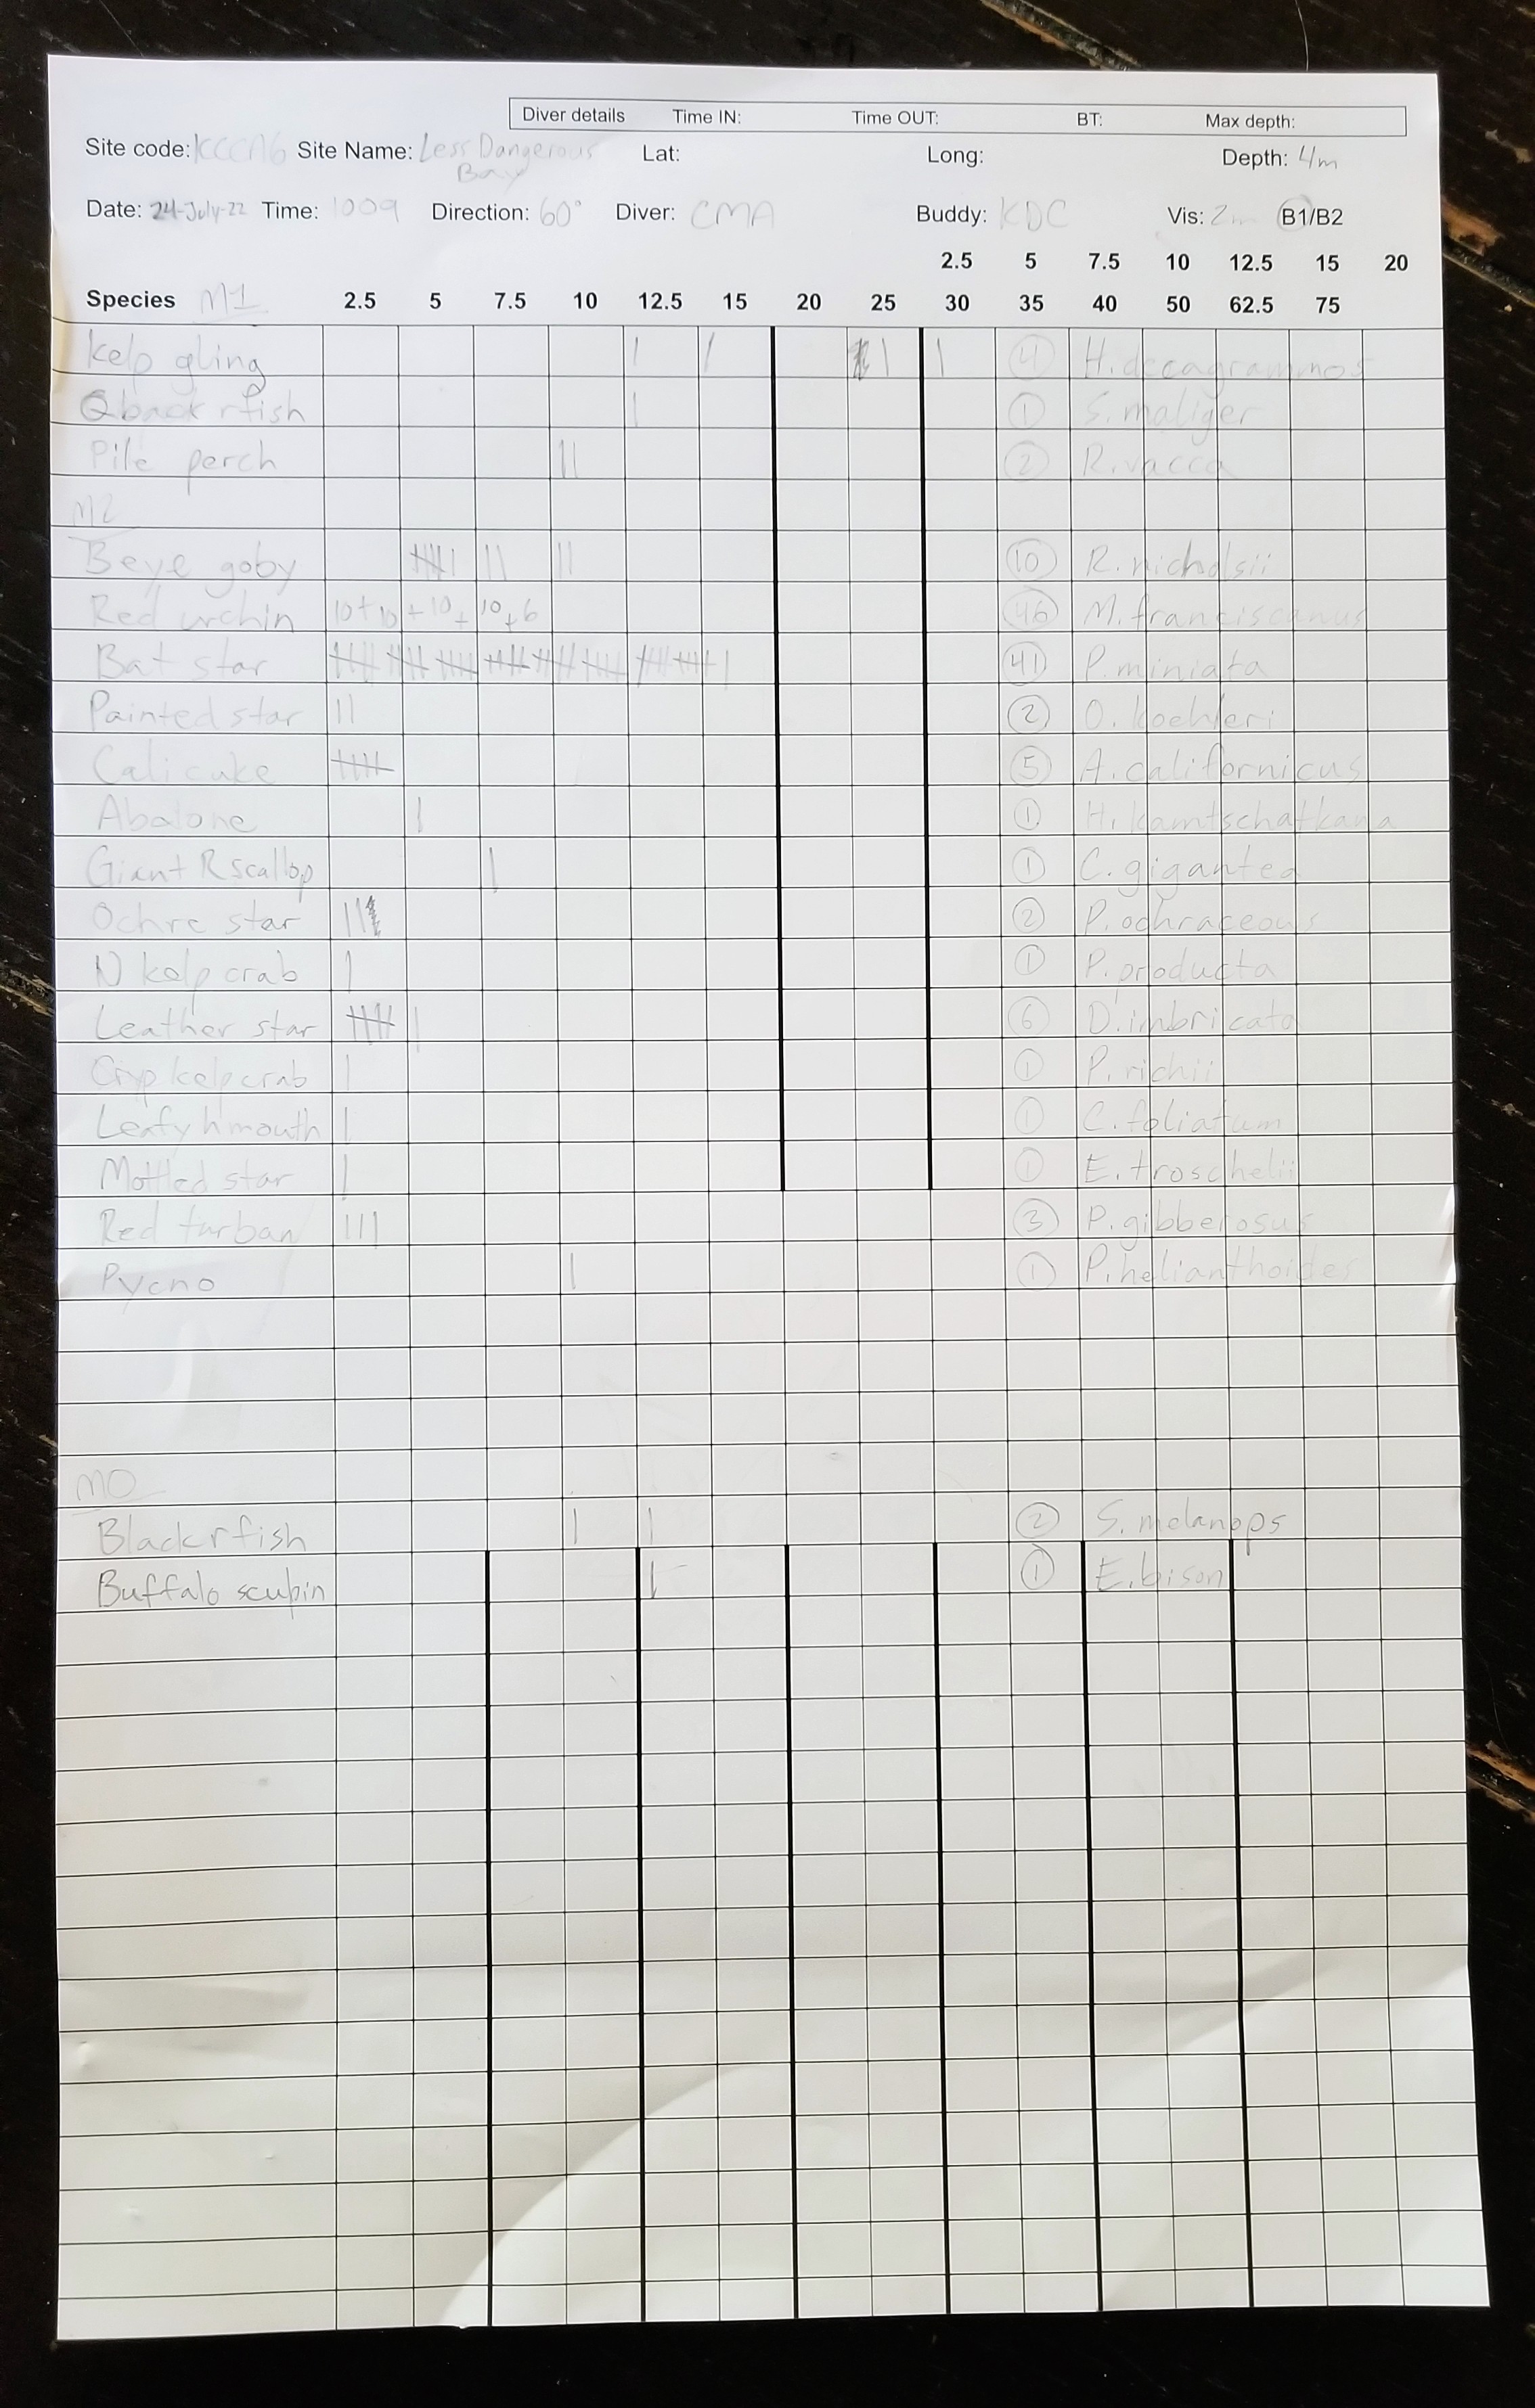 Diver details Time IN: Time OUT: BT: Max depth:
Site code: KCCA6 Site Name: Less Dangerous Bay Lat: Long: Depth: 4m
Date: 24-July-22 Time: 1009 Direction: 60° Diver: CMA Buddy: KDC Vis: 2m B1/B2
2.5 5 7.5 10 12.5 15 20
Species M1 2.5 5 7.5 10 12.5 15 20 25 30 35 40 50 62.5 75
Kelp gling | | | | 4 H. decagrammos
Qback rfish | 1 S. maliger
Pile perch || 2 R. vacca
M2
Beye goby |||| | || || 10 R. nicholsii
Red urchin 10+10+10+10+6 46 M. franciscanus
Bat star |||| |||| |||| |||| |||| |||| |||| |||| | 41 P. miniata
Painted star || 2 O. koehleri
Cali cuke |||| 5 A. californicus
Abalone | 1 H. kamtschatkana
Giant R scallop | 1 C. gigantea
Ochre star || 2 P. ochraceous
N kelp crab | 1 P. producta
Leather star |||| | 6 D. imbricata
Cryp kelp crab | 1 P. richii
Leafy hmouth | 1 C. foliatum
Mottled star | 1 E. troschelii
Red turban ||| 3 P. gibberosus
Pycno | 1 P. helianthoides
M0
Black rfish | | 2 S. melanops
Buffalo sculpin | 1 E. bison